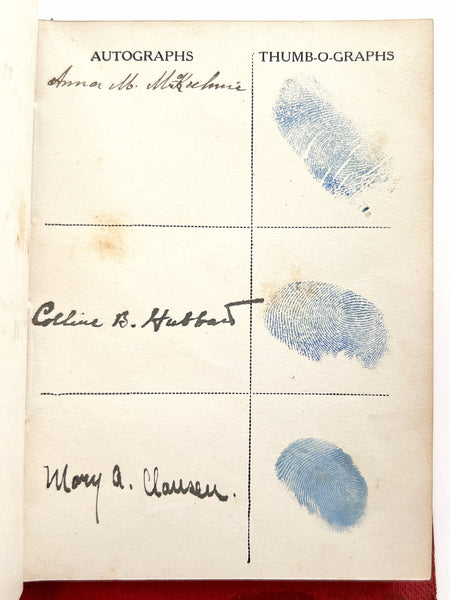 AUTOGRAPHS THUMB-O-GRAPHS
Anna M. McKechnie
Colline B. Hubbard
Mary A. Clausen.